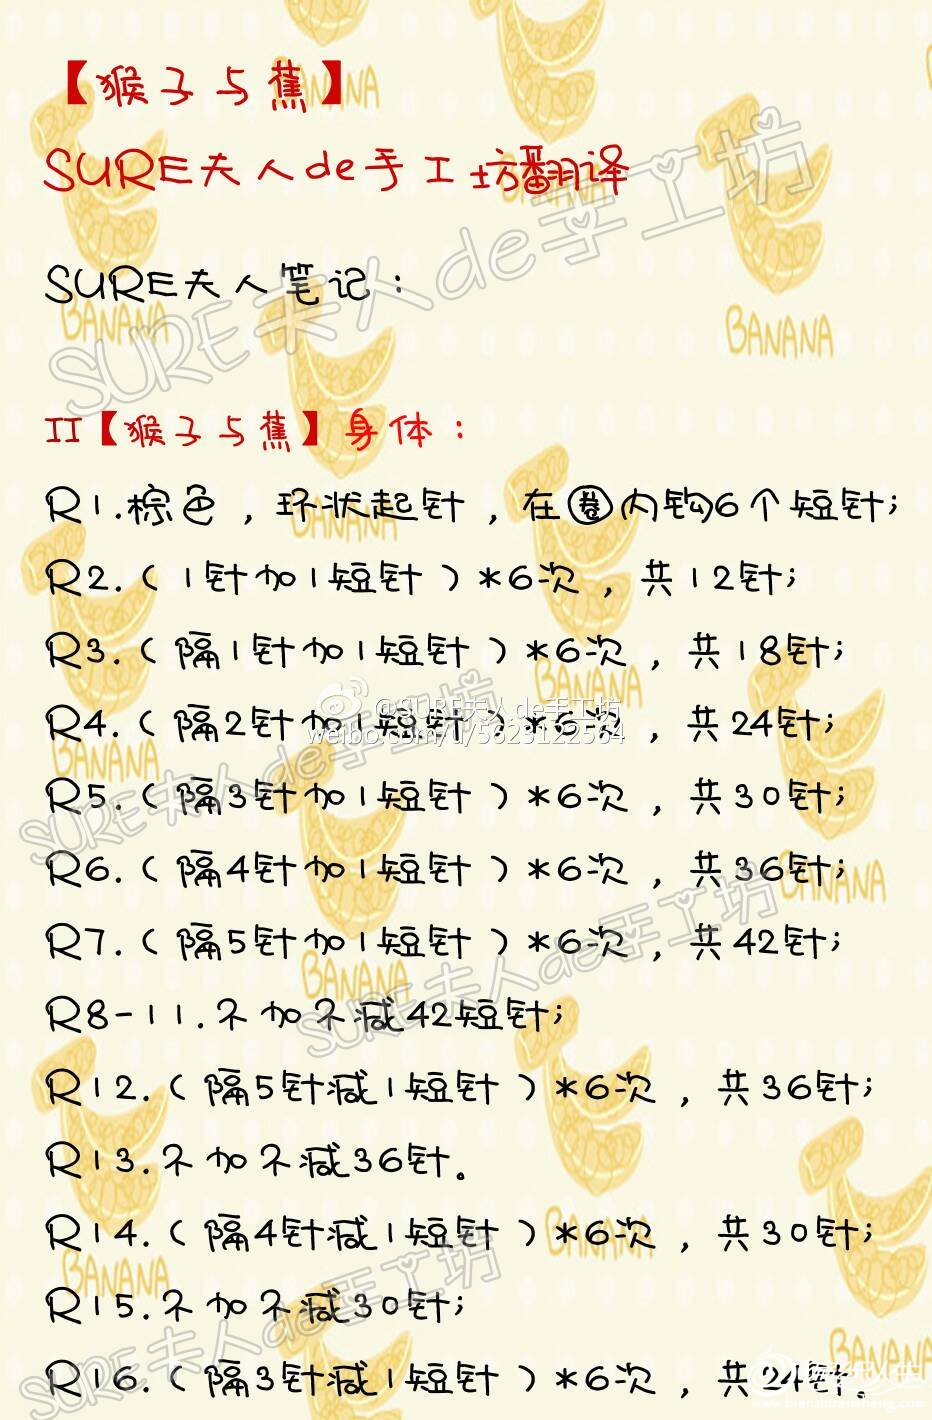 【猴子与蕉】
SURE夫人de手工坊翻译
SURE夫人笔记：
II【猴子与蕉】身体：
R1.棕色，环状起针，在圈内钩6个短针；
R2.（1针加1短针）*6次，共12针；
R3.（隔1针加1短针）*6次，共18针；
R4.（隔2针加1短针）*6次，共24针；
@SURE夫人de手工坊
weibo.com/u/5623122564
R5.（隔3针加1短针）*6次，共30针；
R6.（隔4针加1短针）*6次，共36针；
R7.（隔5针加1短针）*6次，共42针；
R8-11.不加不减42短针；
R12.（隔5针减1短针）*6次，共36针；
R13.不加不减36针。
R14.（隔4针减1短针）*6次，共30针；
R15.不加不减30针；
R16.（隔3针减1短针）*6次，共24针
www.bianzhirensheng.com
SURE夫人de手工坊
SURE夫人de手工坊
SURE夫人de手工坊
SURE夫人de手工坊
BANANA
BANANA
BANANA
BANANA
BANANA
BANANA
BANANA
BANANA
BANANA
BANANA
BANANA
BANANA